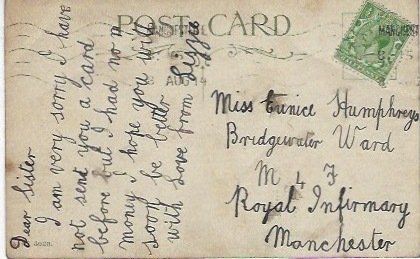 POST CARD
MANCHESTER
AUG 14
Dear Sister
I am very sorry I have
not send you a card
before but I had no m
money I hope you will
soon be better
with love from Lizzie
Miss Eunice Humphreys
Bridgewater Ward
M 4 F
Royal Infirmary
Manchester